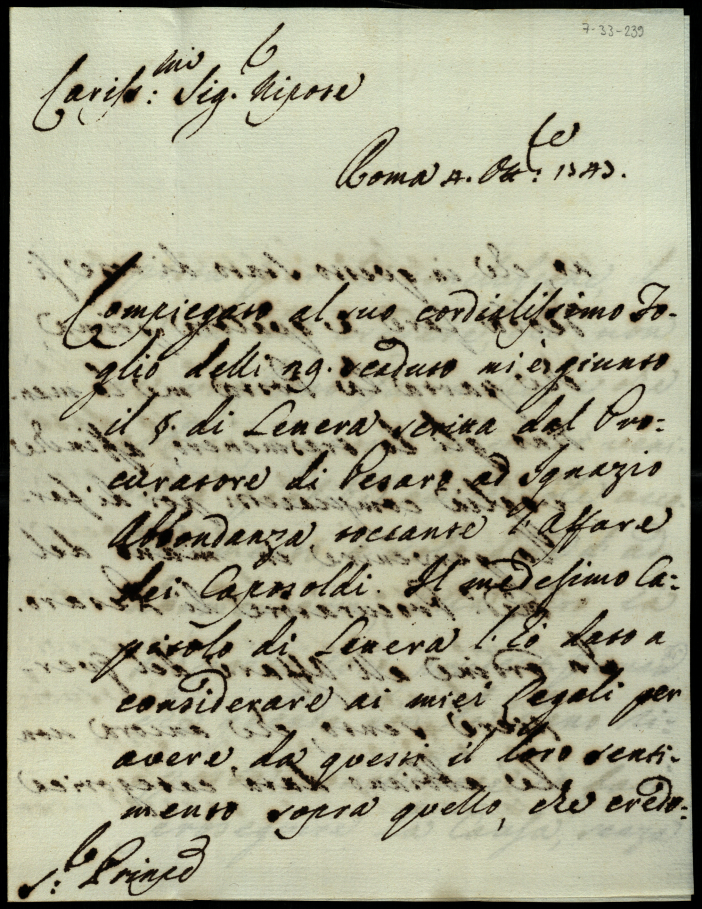 7-33-239
Cariss:mo Sig.r Nipote
Roma 4. Ott:re 1743.
Compiegato al suo cordialissimo Fo-
glio delli 29. scaduto mi è giunto
il §. di Lettera scritta dal Pro-
curatore di Pesaro ad Ignazio
Abbondanza toccante l'affare
dei Caposoldi. Il medesimo Ca-
pitolo di Lettera l'hò dato a
considerare ai miei Legali per
avere da questi il loro senti-
mento sopra quello, che credo-